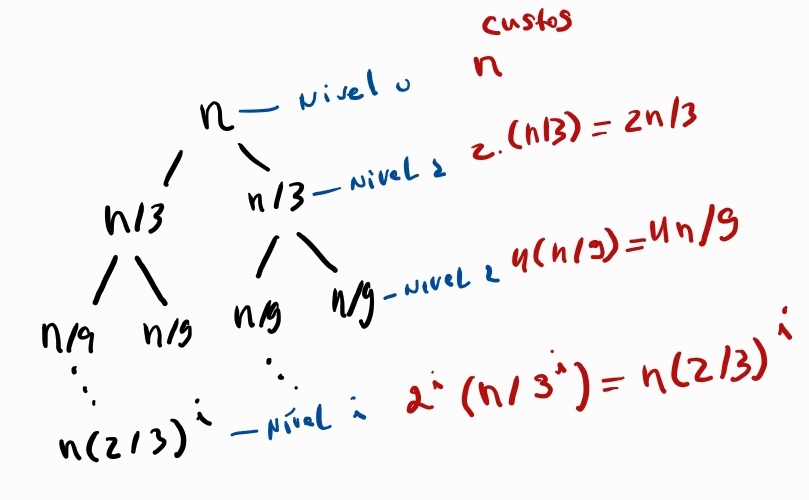 custos
n — Nivel 0 n
n/3 n/3 — Nivel 1 2.(n/3) = 2n/3
n/9 n/9 n/9 n/9 — Nivel 2 4(n/9) = 4n/9
n(2/3)^i — Nível i 2^i (n/3^i) = n(2/3)^i